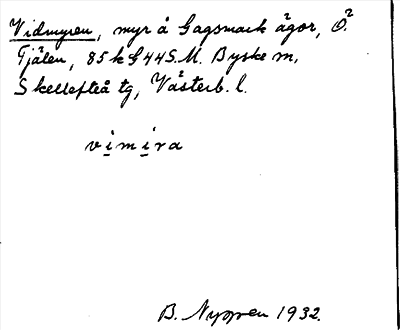 Vidmyren, myr å Gagsmark ägor, Ö.
Tjälen, 85 k G 44 S.M. Byske sn,
Skellefteå tg, Västerb. l.
vimira
B. Nyppen 1932.